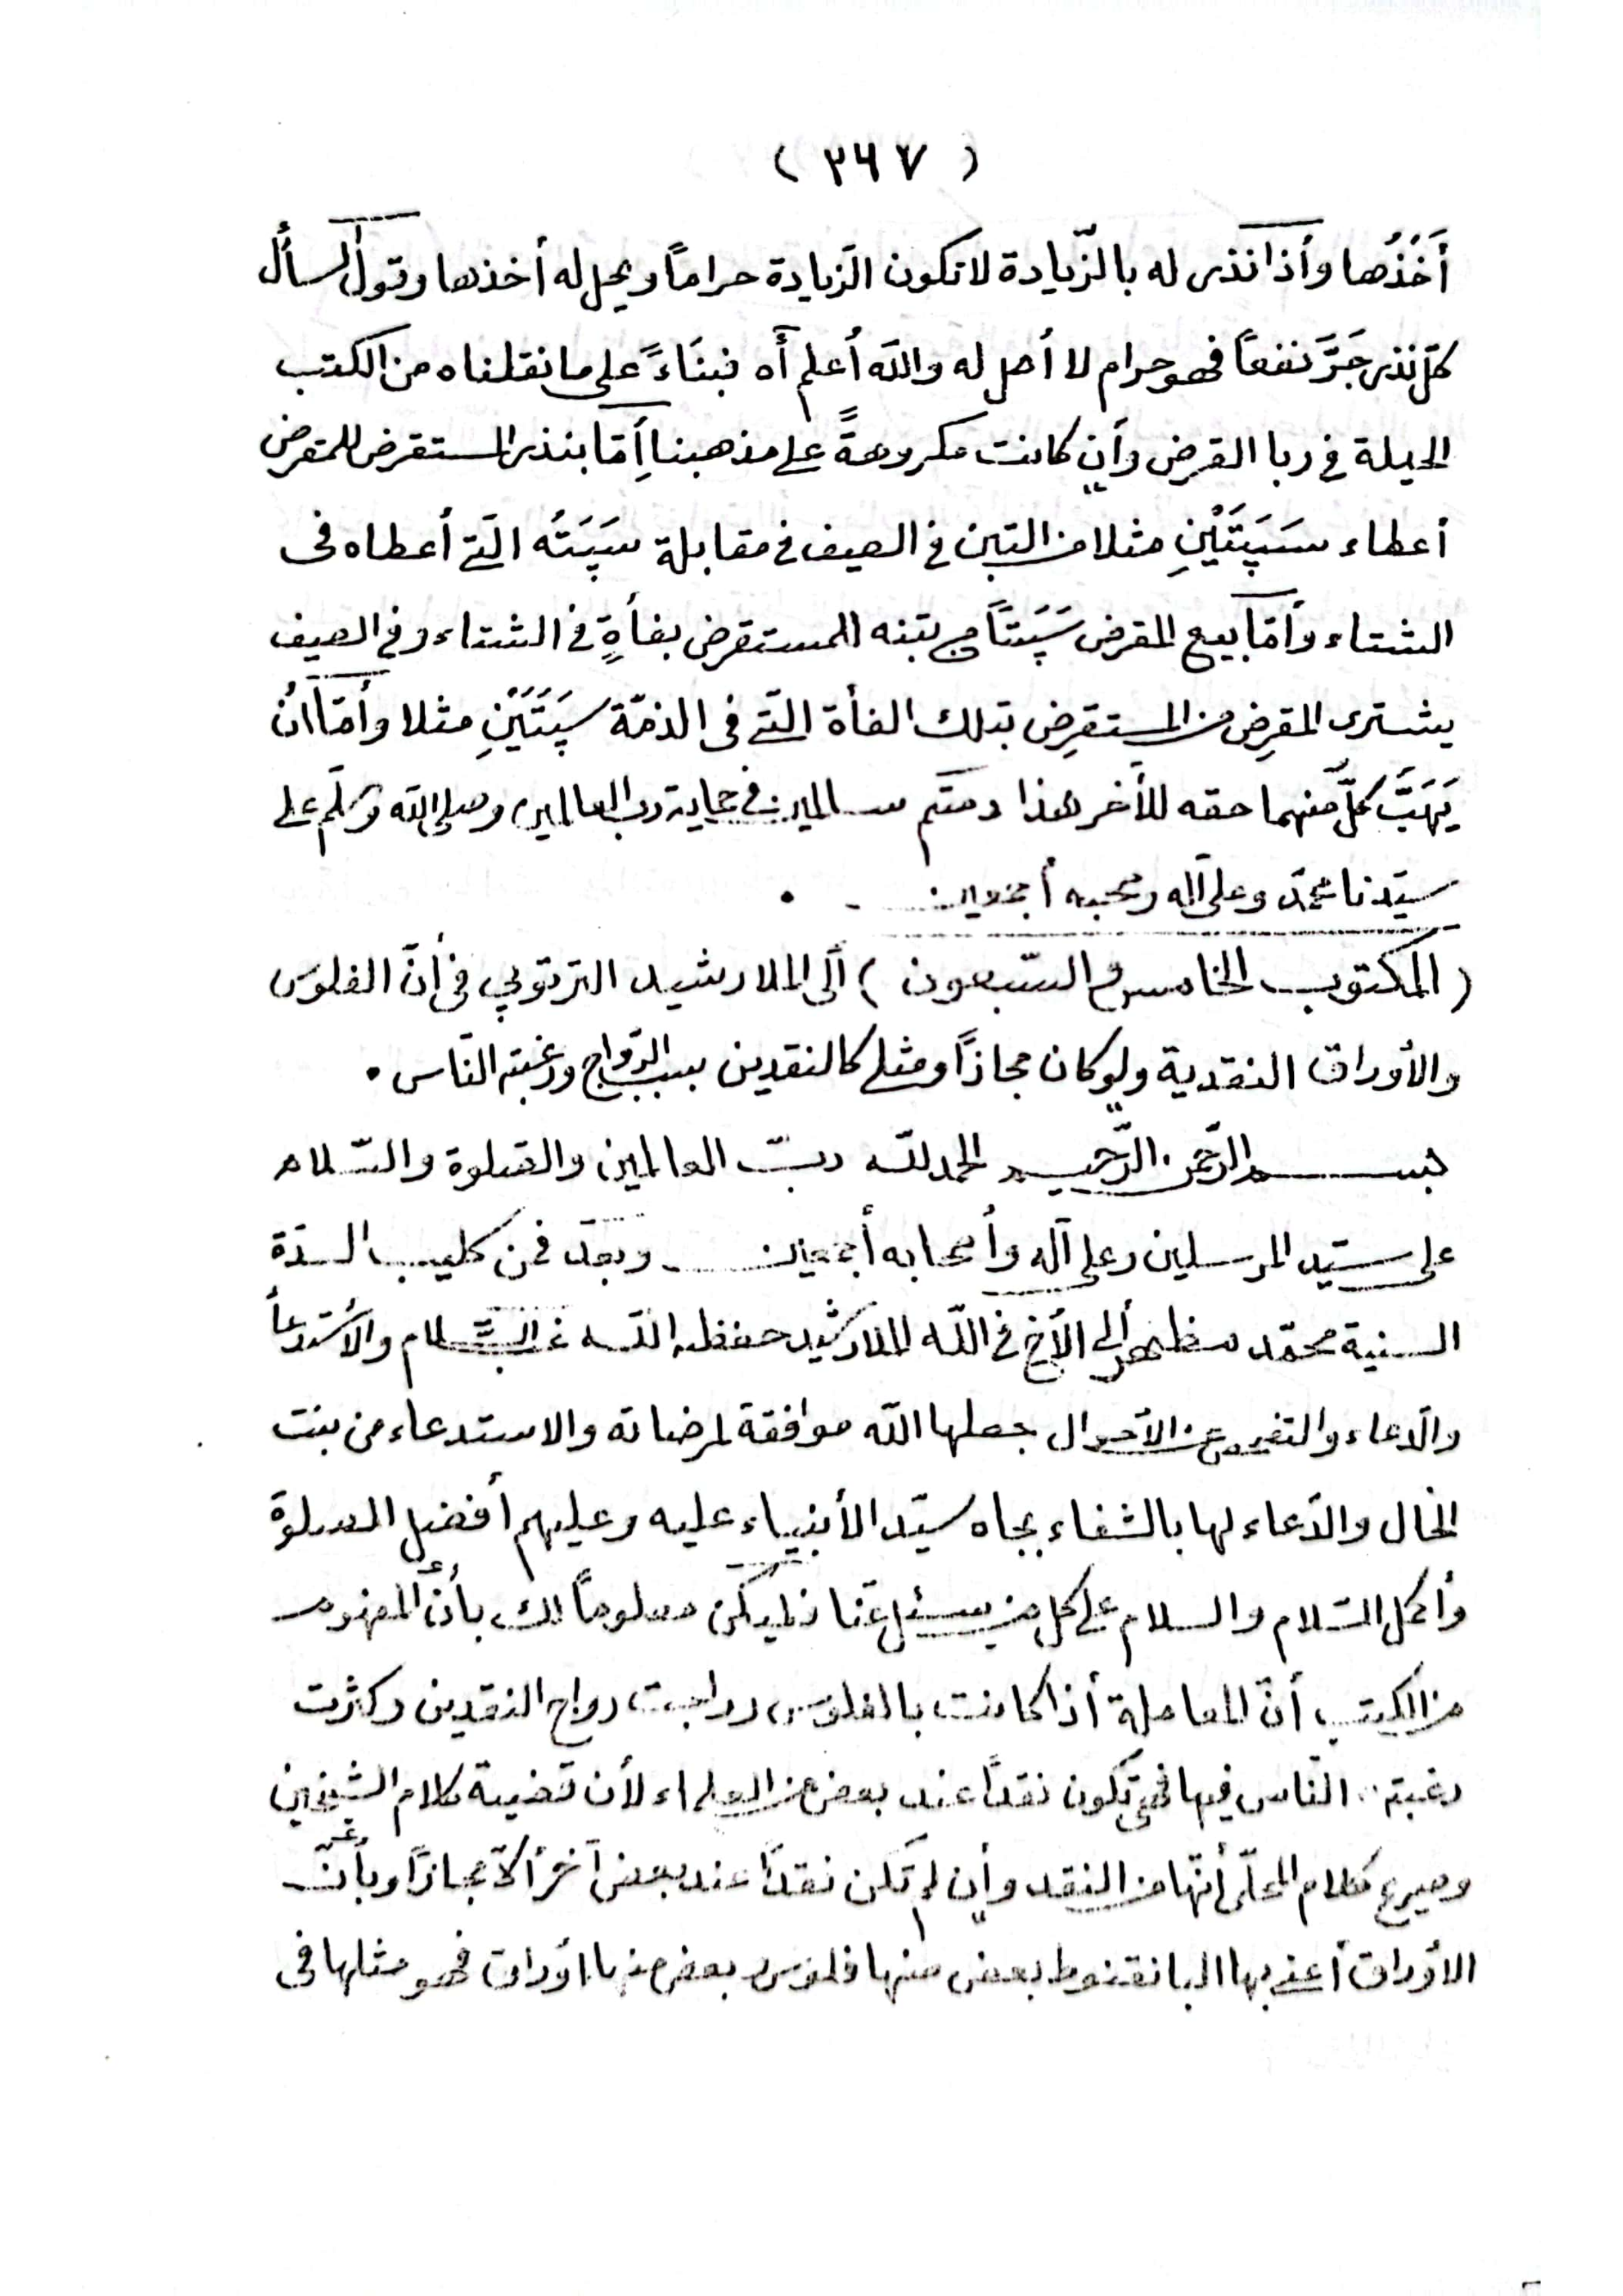 ( ٣٦٧ )
أَخَذُها وأذا نذر له بالزّيادة لا تكون الزّيادة حراماً ويحل له أخذها وقول السأل
كلّ نذر جَرَّ نفعاً فهو حرام لا أصل له والله أعلم أه فبنَاءً على ما نقلناه من الكتب
الحيلة في ربا القرض وأن كانت مكروهةً على مذهبنا أِمّا بنذر المستقرض للمقرض
أعطاء سَپَتَيْنِ مثلا من التبن في الصيف في مقابلة سَپَتُه الّتي أعطاه في
الشتاء وأمّا بيع المقرض سَپَتاً من تبنه المستقرض بفأةٍ في الشتاء وفي الصيف
يشترى المقرِض من المستقرِض بتلك الفأة الّتي في الذمّة سپَتَيَنِ مثلا وأمّا انُ
يَهَبَّ كلّ منهما حقه للأخر هذا دمتم سالمين في حماية رب العالمين وصلى الله وسلّم على
سيّدنا محمّد وعلى آله وصحبه أجمعين .
( المكتوب الخامس والسّبعون ) ألى الملا رشيد الترتوپي في أنّ الفلوس
والأوراق النقدية ولو كان مجازاً ومثلى كالنقدين بسبب الرّواج ورغبته النّاس .
بسم الرّحمن الرّحيم الحمد للّه ربّ العالمين والصّلوة والسّلام
على سيّد المرسلين وعلى آله وأصحابه أجمعين وبعد فمن كليب السدّة
السنية محمّد مظهر ألى الأخ في اللّه الملا رشيد حفظه اللّه غبّ السّلام والأستدعأ
والدّعاء والتفير عن الأحوال جعلها اللّه موافقة لمرضاته والاستدعاء من بنت
الخال والدّعاء لها بالشفاء بجاه سيّد الأنبياء عليه وعليهم أفضل الصلوة
وأكمل السّلام والسلام على كل من يسئل عنّا فليكن معلوماً لك بأنّ المفهوم
من الكتب أنّ المعاملة أذا كانت بالفلوس وراجت رواج النقدين وكثرت
رغبته النّاس فيها فهى تكون نقداً عند بعض من العلماء لأن قضية كلام الشيخين
وصريح كلام المحلّى أنّها من النقد وأن لم تكن نقداً عند بعض آخر ألاّ مجازاً وبأنّ
الاوّراق أعني بها البانقنوط بعض منها فلوس وبعض منها اوراق فهو مثلها في